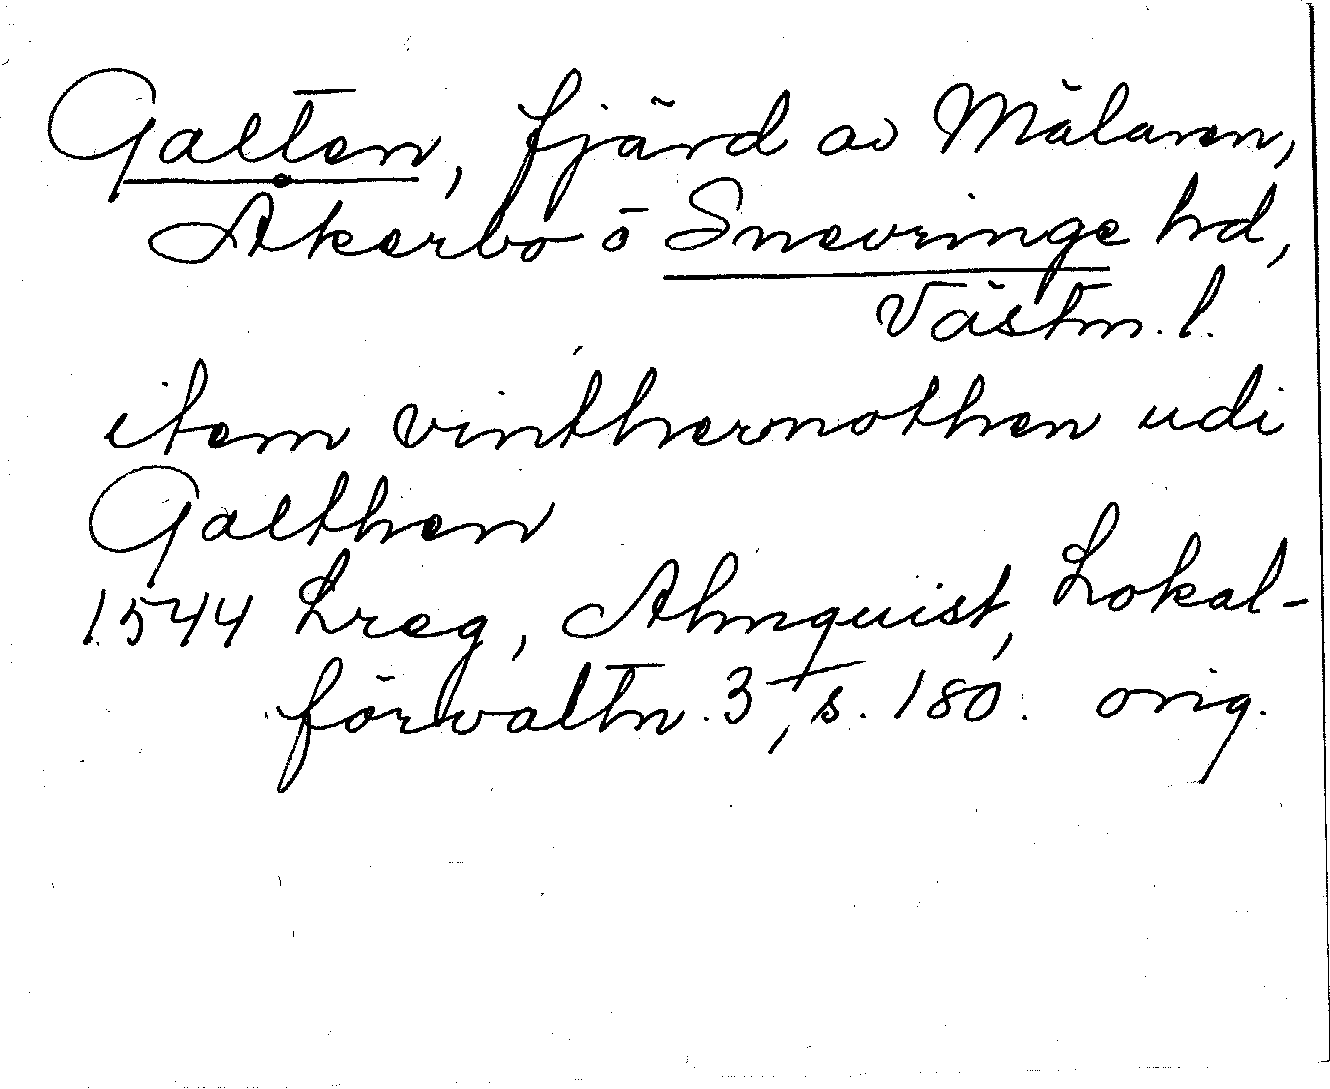 Galten, fjärd av Mälaren,
Åkerbo o Snevringe hd,
Västm. l.
item vinthernothen udi
Galthen
1544 Lreg, Almquist, Lokal-
förvaltn. 3, s. 180. orig.